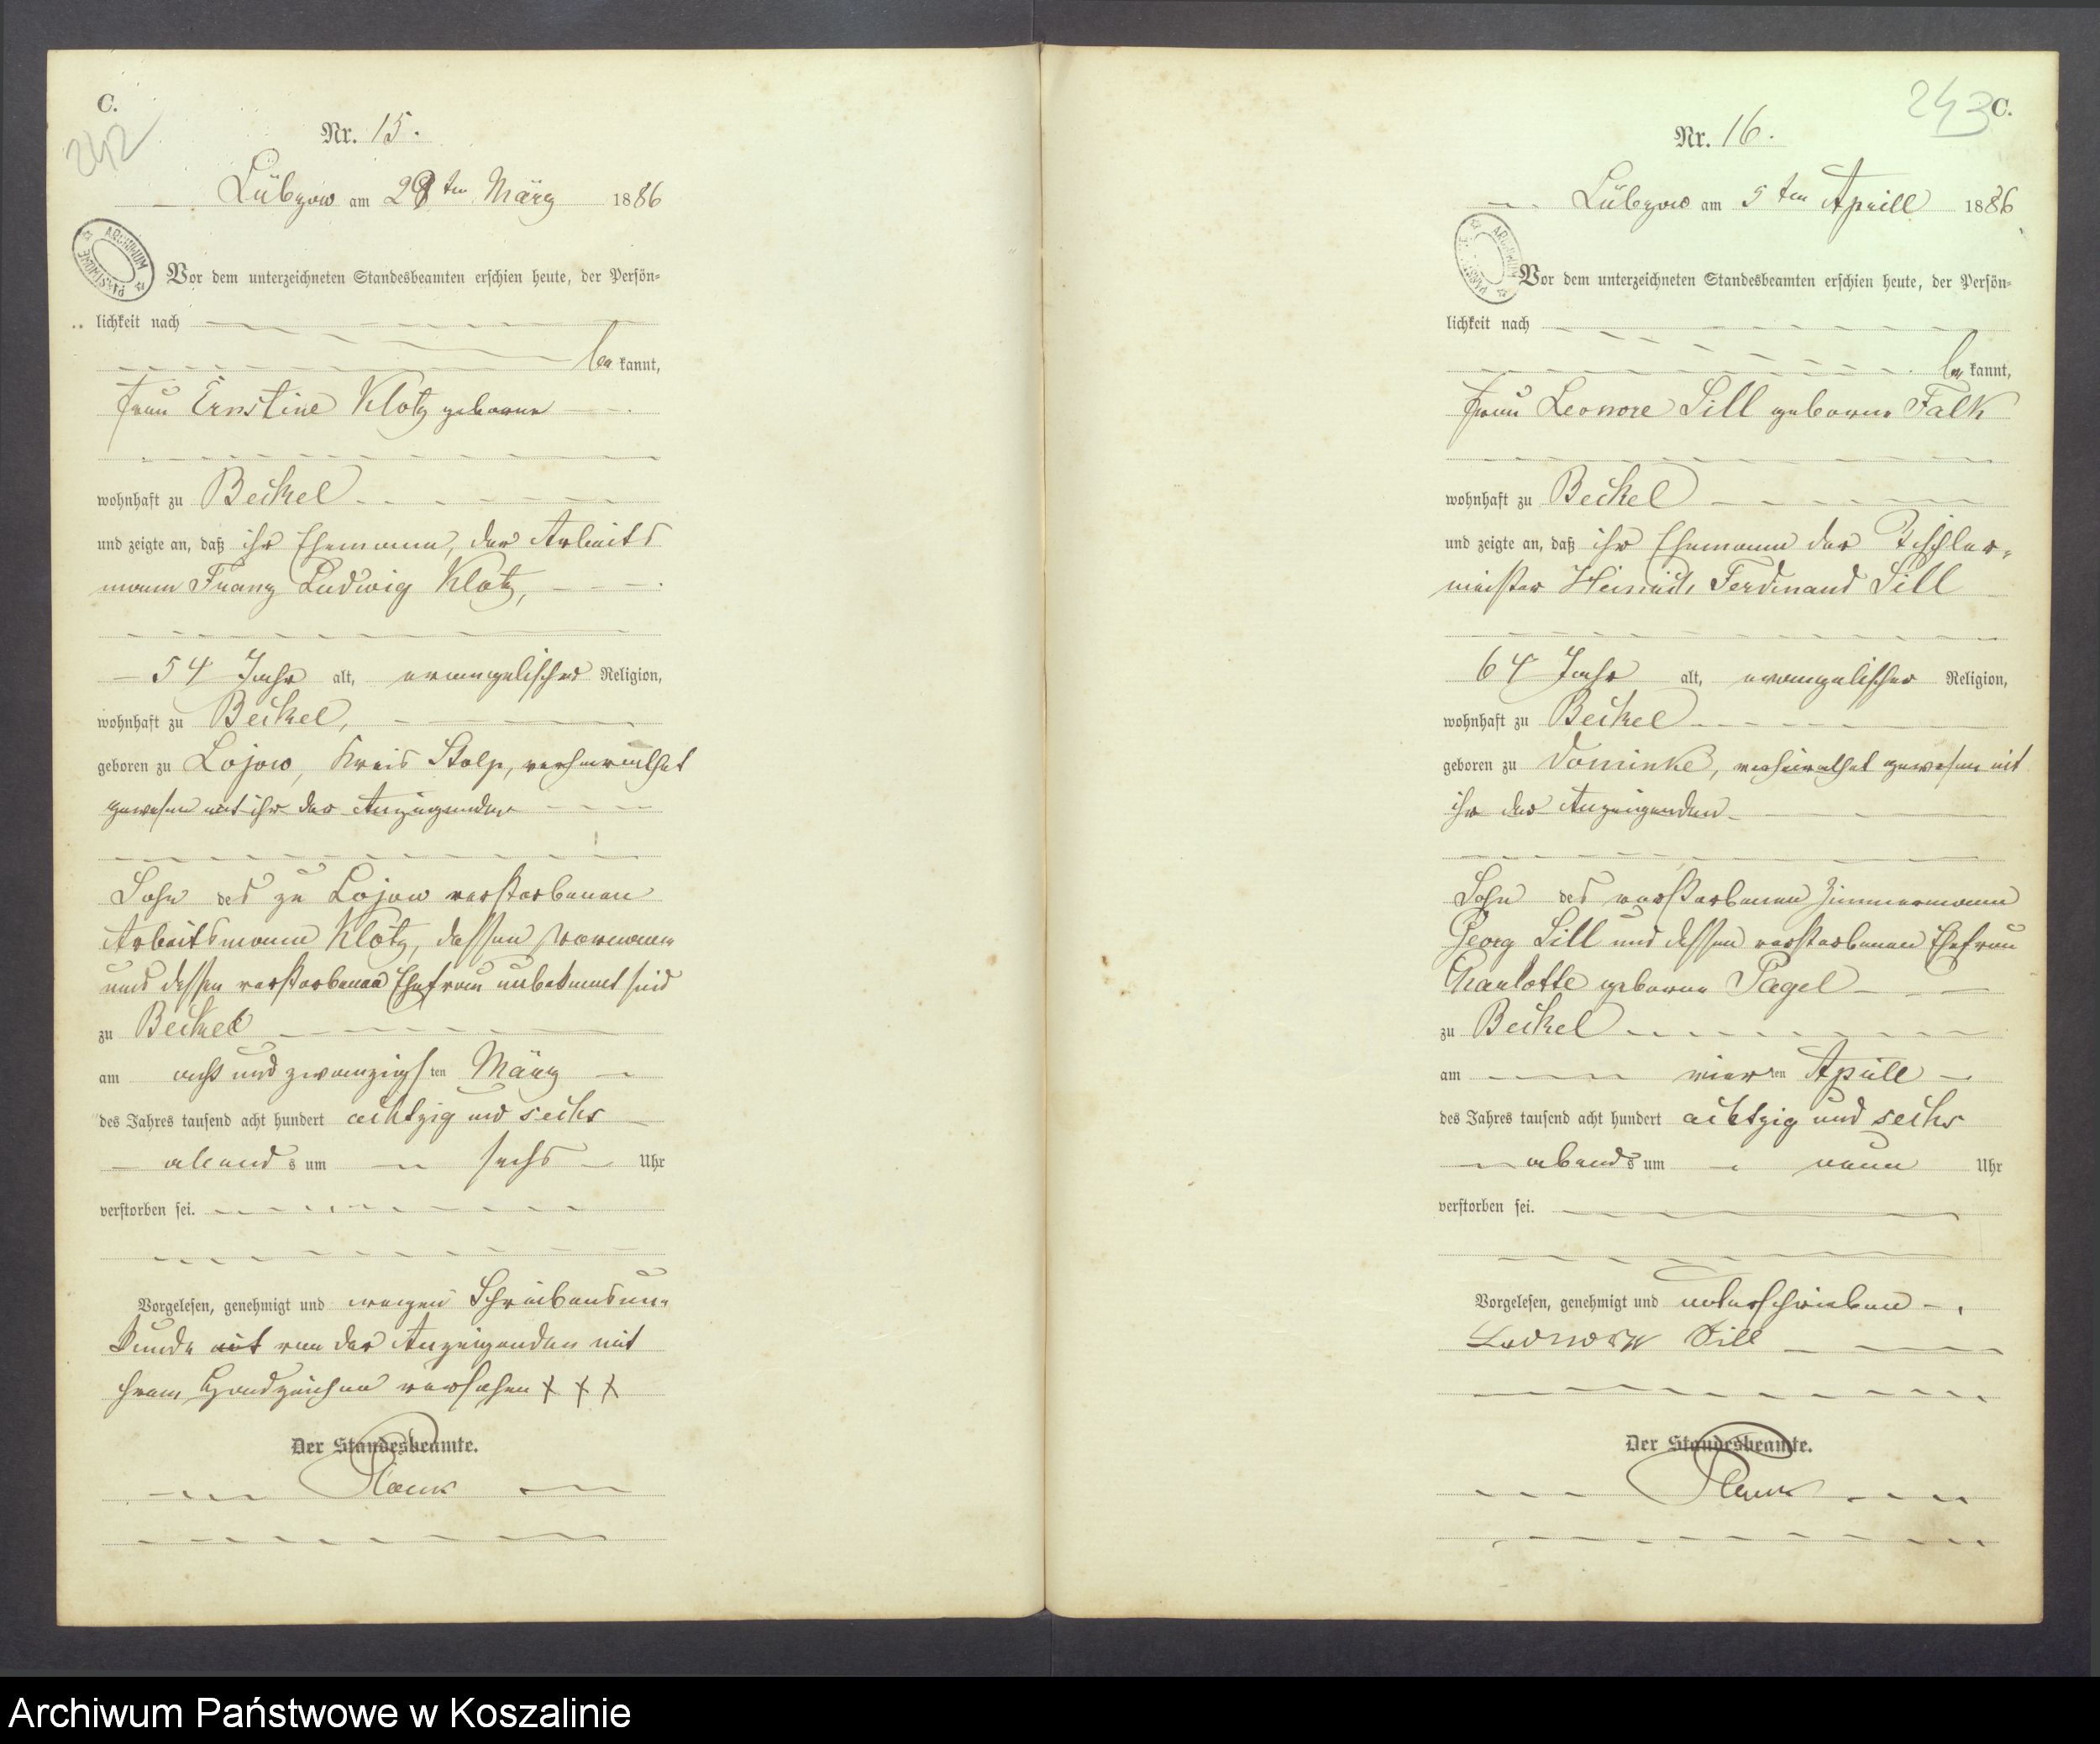 C.
242
Nr. 15.
Lübzow am 29ten März 1886
Vor dem unterzeichneten Standesbeamten erschien heute, der Persön-
lichkeit nach
bekannt,
Frau Ernstine Klotz geborene
wohnhaft zu Beckel
und zeigte an, daß ihr Ehemann, der Arbeits
mann Franz Ludwig Klotz,
54 Jahr alt, evangelischer Religion,
wohnhaft zu Beckel,
geboren zu Lojow, Kreis Stolp, verheirathet
gewesen mit ihr der Anzeigenden
Sohn des zu Lojow verstorbenen
Arbeitsmann Klotz, dessen Vorname
und dessen verstorbenen Ehefrau unbekannt sind
zu Beckel
am acht und zwanzigsten März
des Jahres tausend acht hundert achtzig und sechs
abends um sechs Uhr
verstorben sei.
Vorgelesen, genehmigt und wegen Schreibensun-
kunde mit von der Anzeigenden mit
ihrem Handzeichen versehen + + +
Der Standesbeamte.
243
C.
Nr. 16.
Lübzow am 5ten Aprill 1886
ARCHIWUM PAŃSTWOWE
Vor dem unterzeichneten Standesbeamten erschien heute, der Persön-
lichkeit nach
bekannt,
Frau Leonore Sill geborne Falk
wohnhaft zu Beckel
und zeigte an, daß ihr Ehemann der Tischler-
meister Heinrich Ferdinand Sill
64 Jahr alt, evangelischer Religion,
wohnhaft zu Beckel
geboren zu Dominke, verheirathet gewesen mit
ihr der Anzeigenden
Sohn des verstorbenen Zimmermann
Georg Sill und dessen verstorbenen Ehefrau
Charlotte geborne Pagel
zu Beckel
am vierten Aprill
des Jahres tausend acht hundert achtzig und sechs
abends um neun Uhr
verstorben sei.
Vorgelesen, genehmigt und unterschrieben
Leonore Sill
Der Standesbeamte.
Archiwum Państwowe w Koszalinie